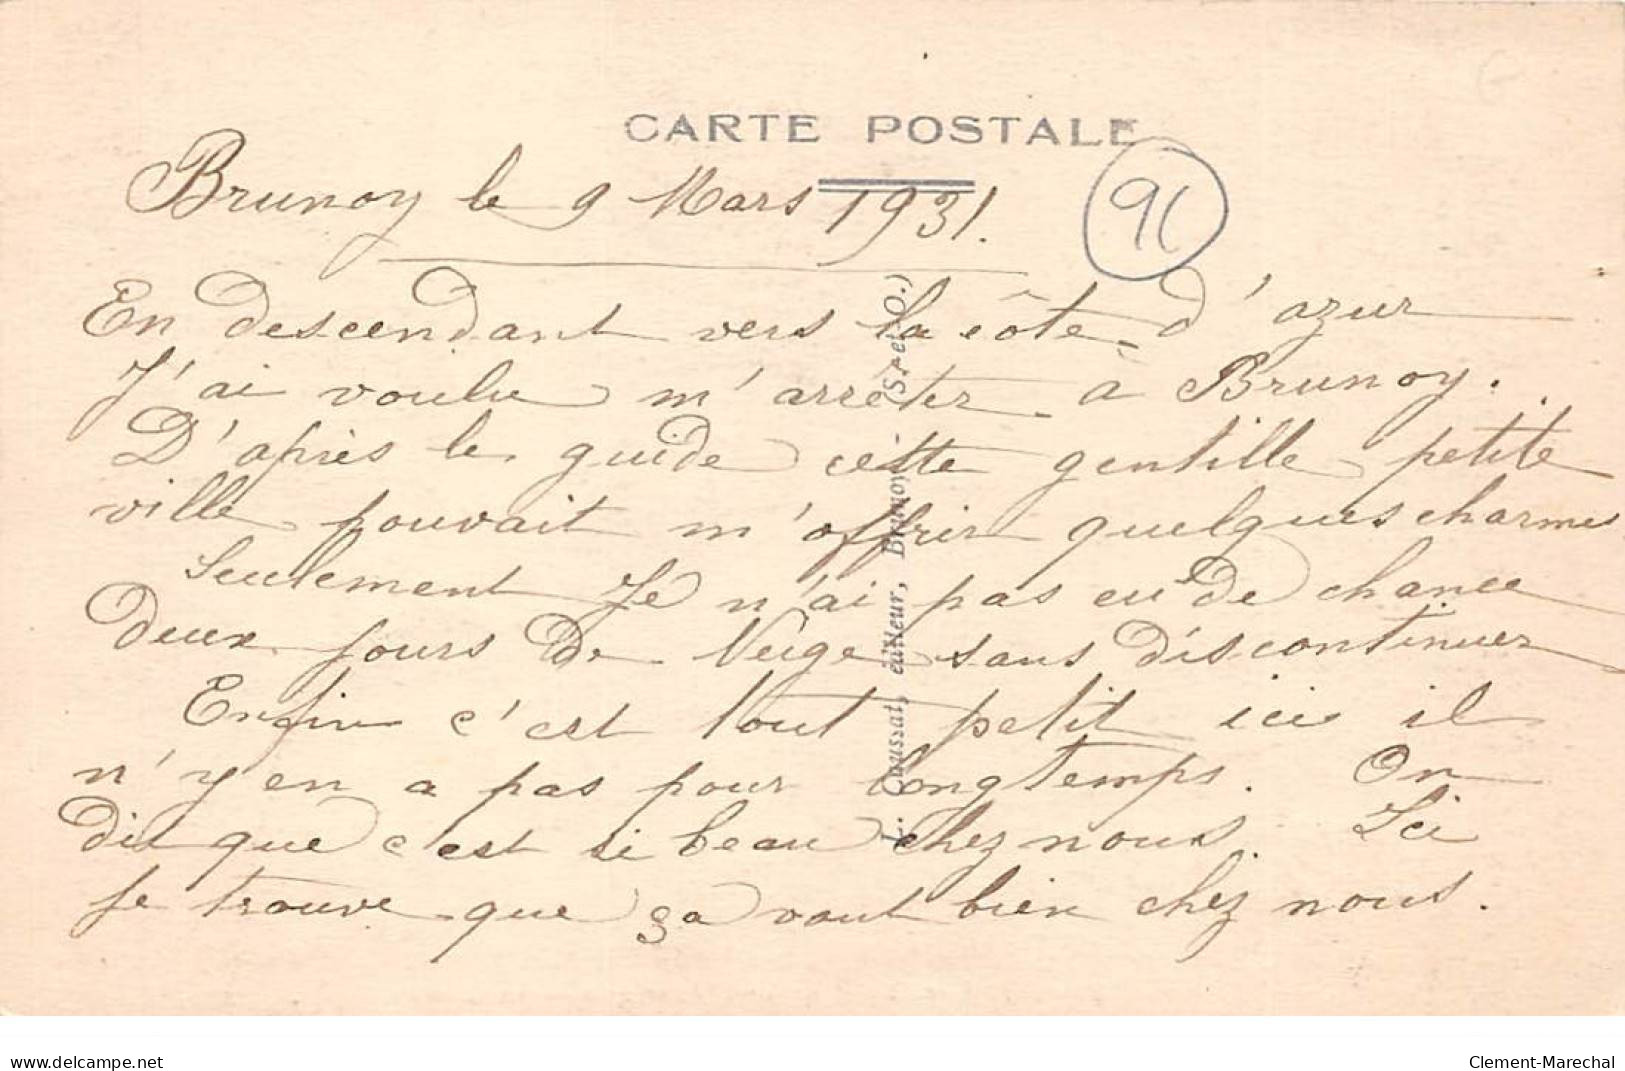 CARTE POSTALE
Brunoy le 9 Mars 1931.
91
En descendant vers la côte d'azur
J'ai voulu m'arrêter à Brunoy.
D'après le guide cette gentille petite
ville pouvait m'offrir quelques charmes
Seulement Je n'ai pas eu de chance
deux jours de Neige sans discontinuer
Enfin c'est tout petit ici il
n'y en a pas pour longtemps. On
dit que c'est si beau chez nous. Ici
je trouve que ça vaut bien chez nous.
éditeur, Brunoy - (S.-et-O.)
delcampe.net
Clement-Marechal